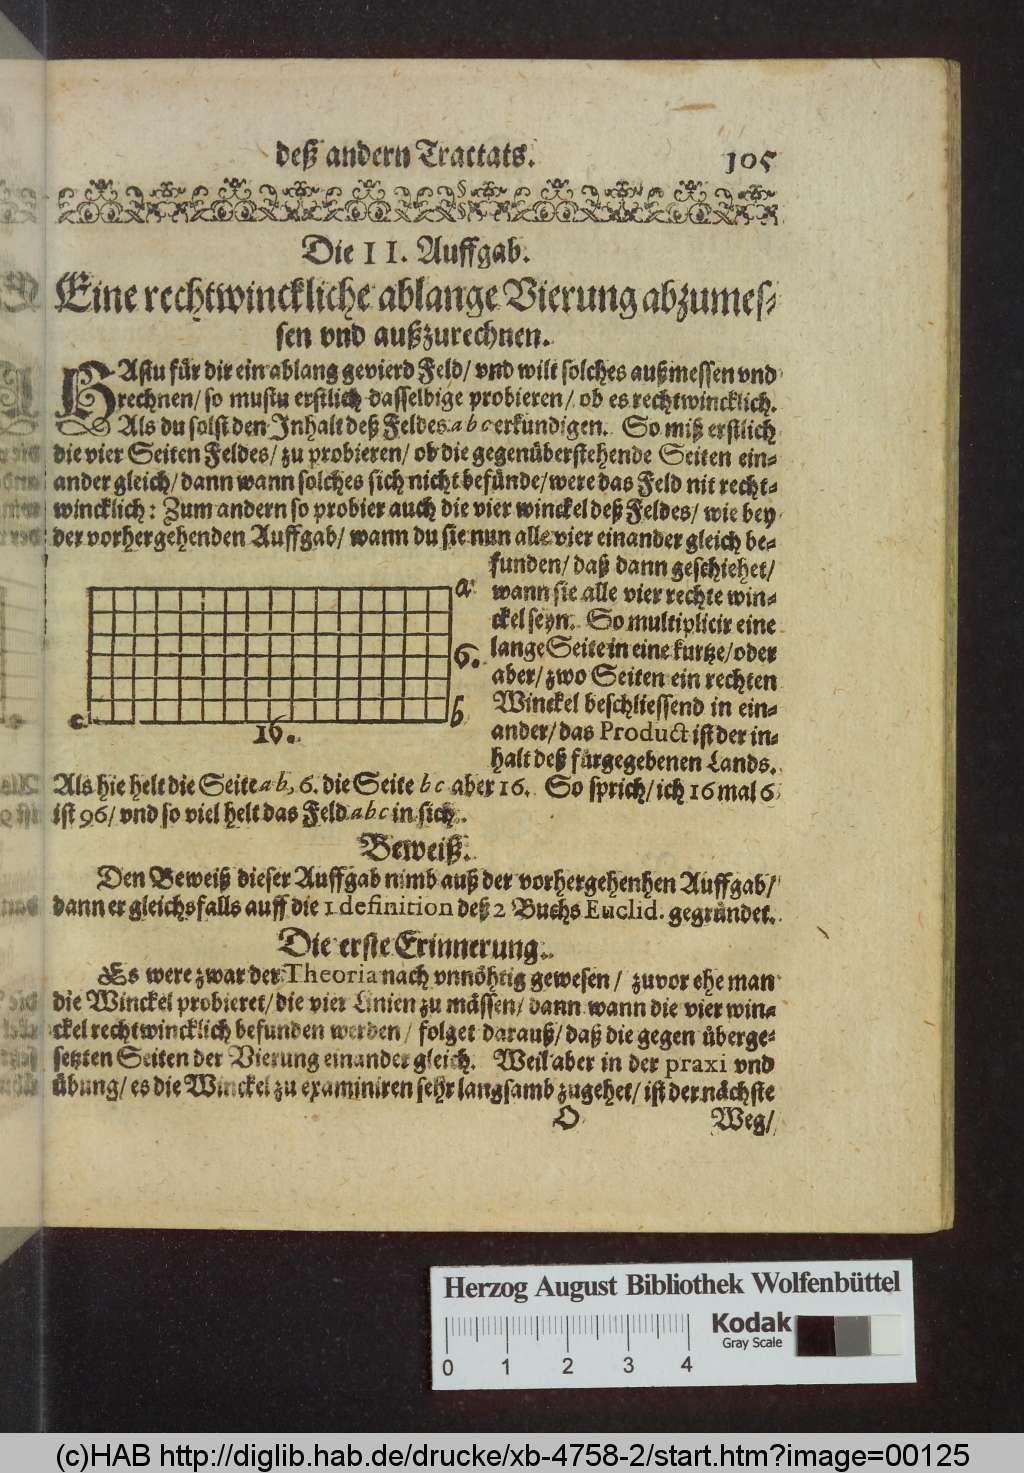 deß andern Tractats. 105
Die II. Auffgab.
Eine rechtwinckliche ablange Vierung abzumes-
sen vnd außzurechnen.
HAstu für dir ein ablang gevierd Feld/ vnd wilt solches außmessen vnd
rechnen/ so mustu erstlich dasselbige probieren/ ob es rechtwincklich.
Als du solst den Inhalt deß Feldes a b c erkundigen. So miß erstlich
die vier Seiten Feldes/ zu probieren/ ob die gegenüberstehende Seiten ein-
ander gleich/ dann wann solches sich nicht befünde/ were das Feld nit recht-
wincklich: Zum andern so probier auch die vier winckel deß Feldes/ wie bey
der vorhergehenden Auffgab/ wann du sie nun alle vier einander gleich be-
funden/ daß dann geschiehet/
wann sie alle vier rechte win-
ckel seyn. So multiplicir eine
lange Seite in eine kurtze/ oder
aber/ zwo Seiten ein rechten
Winckel beschliessend in ein-
ander/ das Product ist der in-
halt deß fürgegebenen Lands.
a
6.
b
c
16.
Als hie helt die Seite a b, 6. die Seite b c aber 16. So sprich/ ich 16 mal 6
ist 96/ vnd so viel helt das Feld a b c in sich.
Beweiß.
Den Beweiß dieser Auffgab nimb auß der vorhergehenhen Auffgab/
dann er gleichsfalls auff die 1 definition deß 2 Buchs Euclid. gegründet.
Die erste Erinnerung.
Es were zwar der Theoria nach vnnöhtig gewesen/ zuvor ehe man
die Winckel probieret/ die vier Linien zu mässen/ dann wann die vier win-
ckel rechtwincklich befunden werden/ folget darauß/ daß die gegen überge-
setzten Seiten der Vierung einander gleich. Weil aber in der praxi vnd
übung/ es die Winckel zu examiniren sehr langsamb zugehet/ ist der nächste
O Weg/
Herzog August Bibliothek Wolfenbüttel
Kodak
Gray Scale
0 1 2 3 4
(c)HAB http://diglib.hab.de/drucke/xb-4758-2/start.htm?image=00125